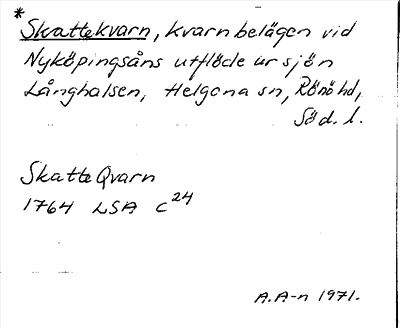 *
Skattekvarn, kvarn belägen vid
Nyköpingsåns utflöde ur sjön
Långhalsen, Helgona sn, Rönö hd,
Söd. l.
Skatte Qvarn
1764 LSA C24
A.A-n 1971.